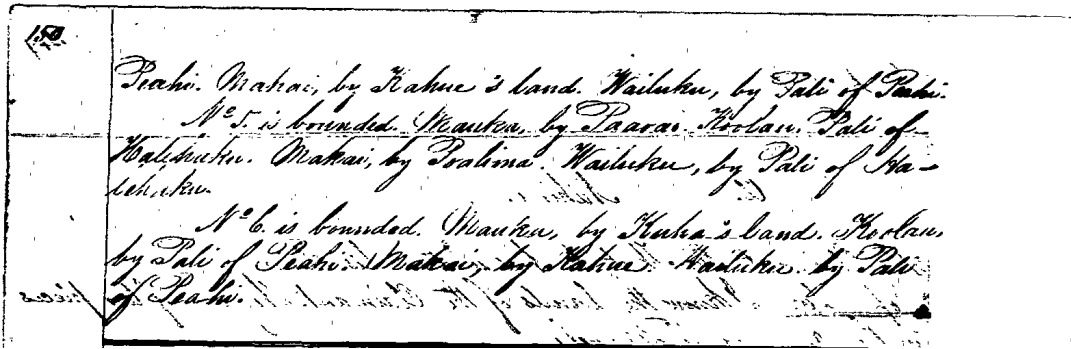 150
Peahi. Makai, by Kahue's land. Wailuku, by Pali of Peahi.
No 5 is bounded. Mauka, by Paavai. Koolau. Pali of
Halehuku. Makai, by Poalima. Wailuku, by Pali of Ha-
lehuku.
No 6. is bounded. Mauka, by Kuha's land. Koolau,
by Pali of Peahi. Makai, by Kahue. Wailuku, by Pali
of Peahi.